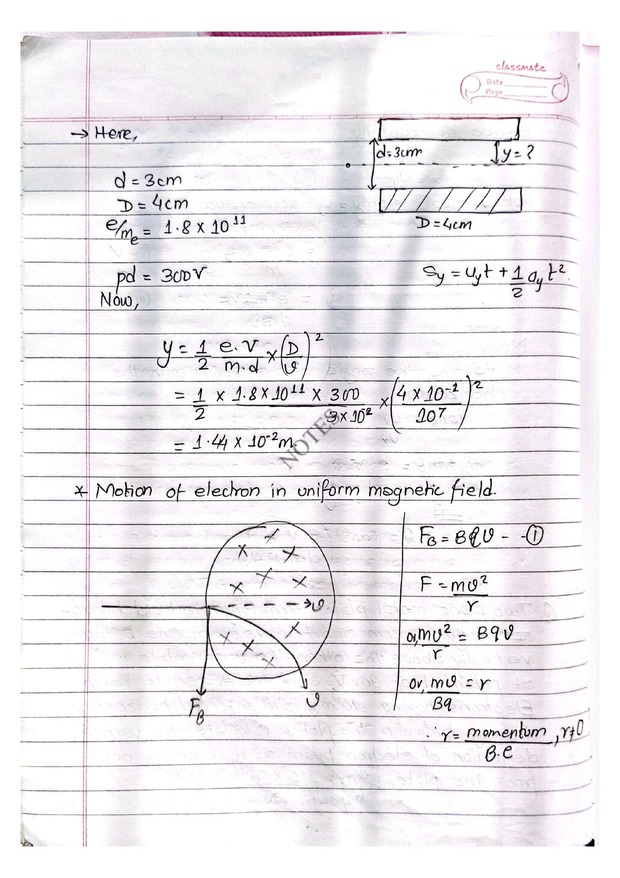 classmate
Date
Page
→ Here,
d = 3cm
y = ?
d = 3cm
D = 4cm
e/me = 1.8 × 10^11
D = 4cm
pd = 300V
Sy = uyt + 1/2 ayt²
Now,
y = 1/2 e.V/m.d × (D/v)²
= 1/2 × 1.8 × 10^11 × 300/3×10^-2 × (4 × 10^-2/10^7)²
= 1.44 × 10^-2 m.
NOTES
* Motion of electron in uniform magnetic field.
FB = Bqv - - ①
v
F = mv²/r
or, mv²/r = Bqv
or, mv/Bq = r
FB
v
∴ r = momentum/B.e, r≠0